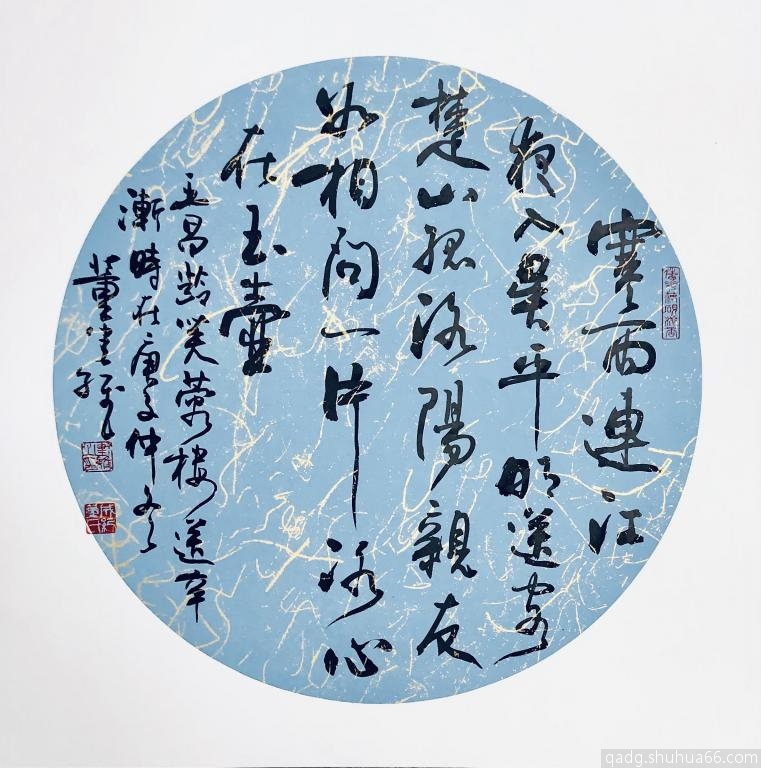 寒雨連江
夜入吳平明送客
楚山孤洛陽親友
如相問一片冰心
在玉壺
王昌齡芙蓉樓送辛
漸時在庚子仲冬
董
qadg.shuhua66.com